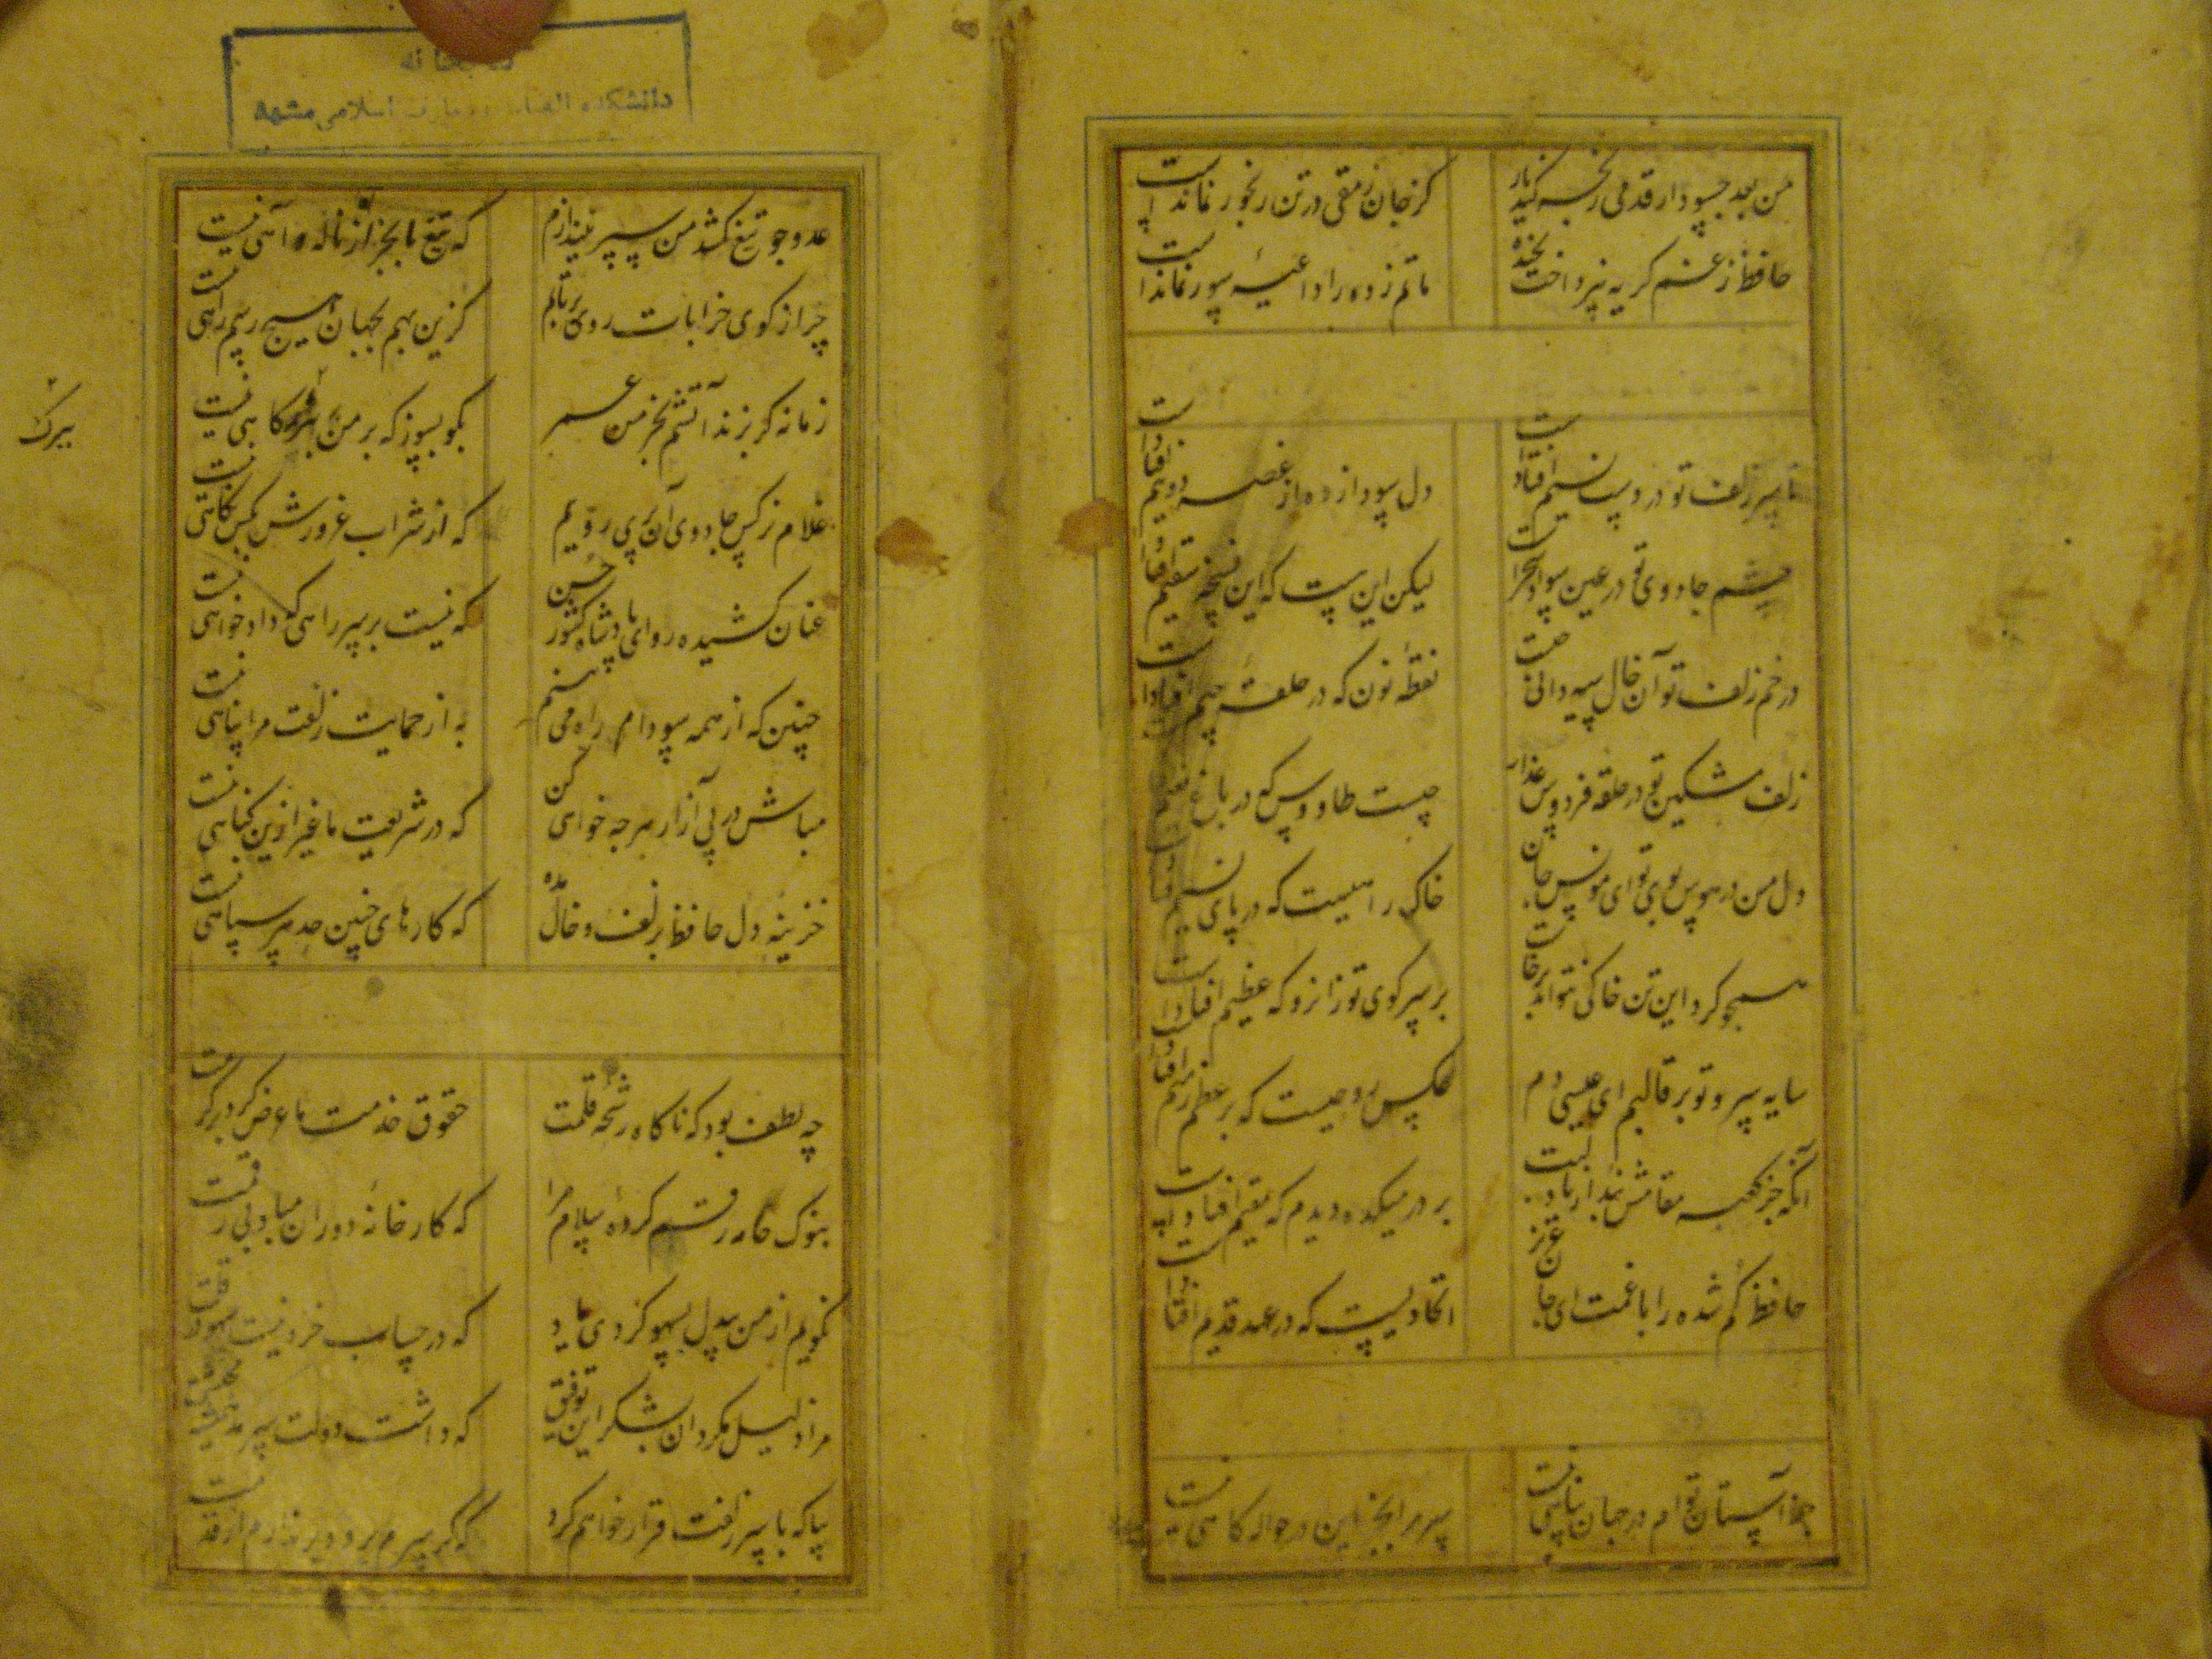 من بعد چه سود ار قدمی رنجه کند یار
کز جان رمقی در تن رنجور نماندست
حافظ ز غم از گریه نپرداخت بخنده
ماتم زده را داعیه سور نماندست
تا سر زلف تو در دست نسیم افتادست
دل سودازده از غصه دو نیم افتادست
چشم جادوی تو در عین سواد سحرست
لیکن این هست که این نسخه سقیم افتادست
در خم زلف تو آن خال سیه دانی چیست
نقطه نون که در حلقه جیم افتادست
زلف مشکین تو در حلقه فردوس عذار
چیست طاووس که در باغ نعیم
دل من در هوس بوی تو ای مونس جان
خاک راهیست که در پای نسیم
همچو گرد این تن خاکی نتواند برخاست
بر سر کوی تو زانرو که عظیم افتادست
سایه سرو تو بر قالبم ای عیسی دم
عکس روحیست که بر عظم رمیم افتاد
آنکه جز کعبه مقامش نبد از یاد لبت
بر در میکده دیدم که مقیم افتادست
حافظ گم شده را با غمت ای جان عزیز
اتحادیست که در عهد قدیم افتادست
جز آستان توام در جهان پناهی نیست
سر مرا بجز این در حواله گاهی نیست
کتابخانه
دانشکده الهیات و معارف اسلامی مشهد
عدو چو تیغ کشد من سپر بیندازم
که تیغ ما بجز از ناله و آهی نیست
چرا ز کوی خرابات روی برتابم
کزین بهم بجهان هیچ رسم راهی نیست
زمانه گر بزند آتشم بخرمن عمر
بگو بسوز که بر من ببرگ کاهی نیست
ببرگ
غلام نرگس جادوی آن پری رویم
که از شراب غرورش بکس نگاهی نیست
عنان کشیده رو ای پادشاه کشور حسن
که نیست بر سر راهی که دادخواهی نیست
چنین که از همه سو دام راه می بینم
به از حمایت زلفت مرا پناهی نیست
مباش در پی آزار هر چه خواهی کن
که در شریعت ما غیر ازین گناهی نیست
خزینه دل حافظ بزلف و خال مده
که کارهای چنین حد هر سیاهی نیست
چه لطف بود که ناگاه رشحه قلمت
حقوق خدمت ما عرض کرد بر کرمت
بنوک خامه رقم کرده سلام مرا
که کارخانه دوران مباد بی رقمت
نگویم از من بیدل بسهو کردی یاد
که در حساب خرد نیست سهو
مرا ذلیل مگردان بشکر این توفیق
که داشت دولت سرمد
بیا که با سر زلفت قرار خواهم کرد
که گر سرم برود بر ندارم از قدمت